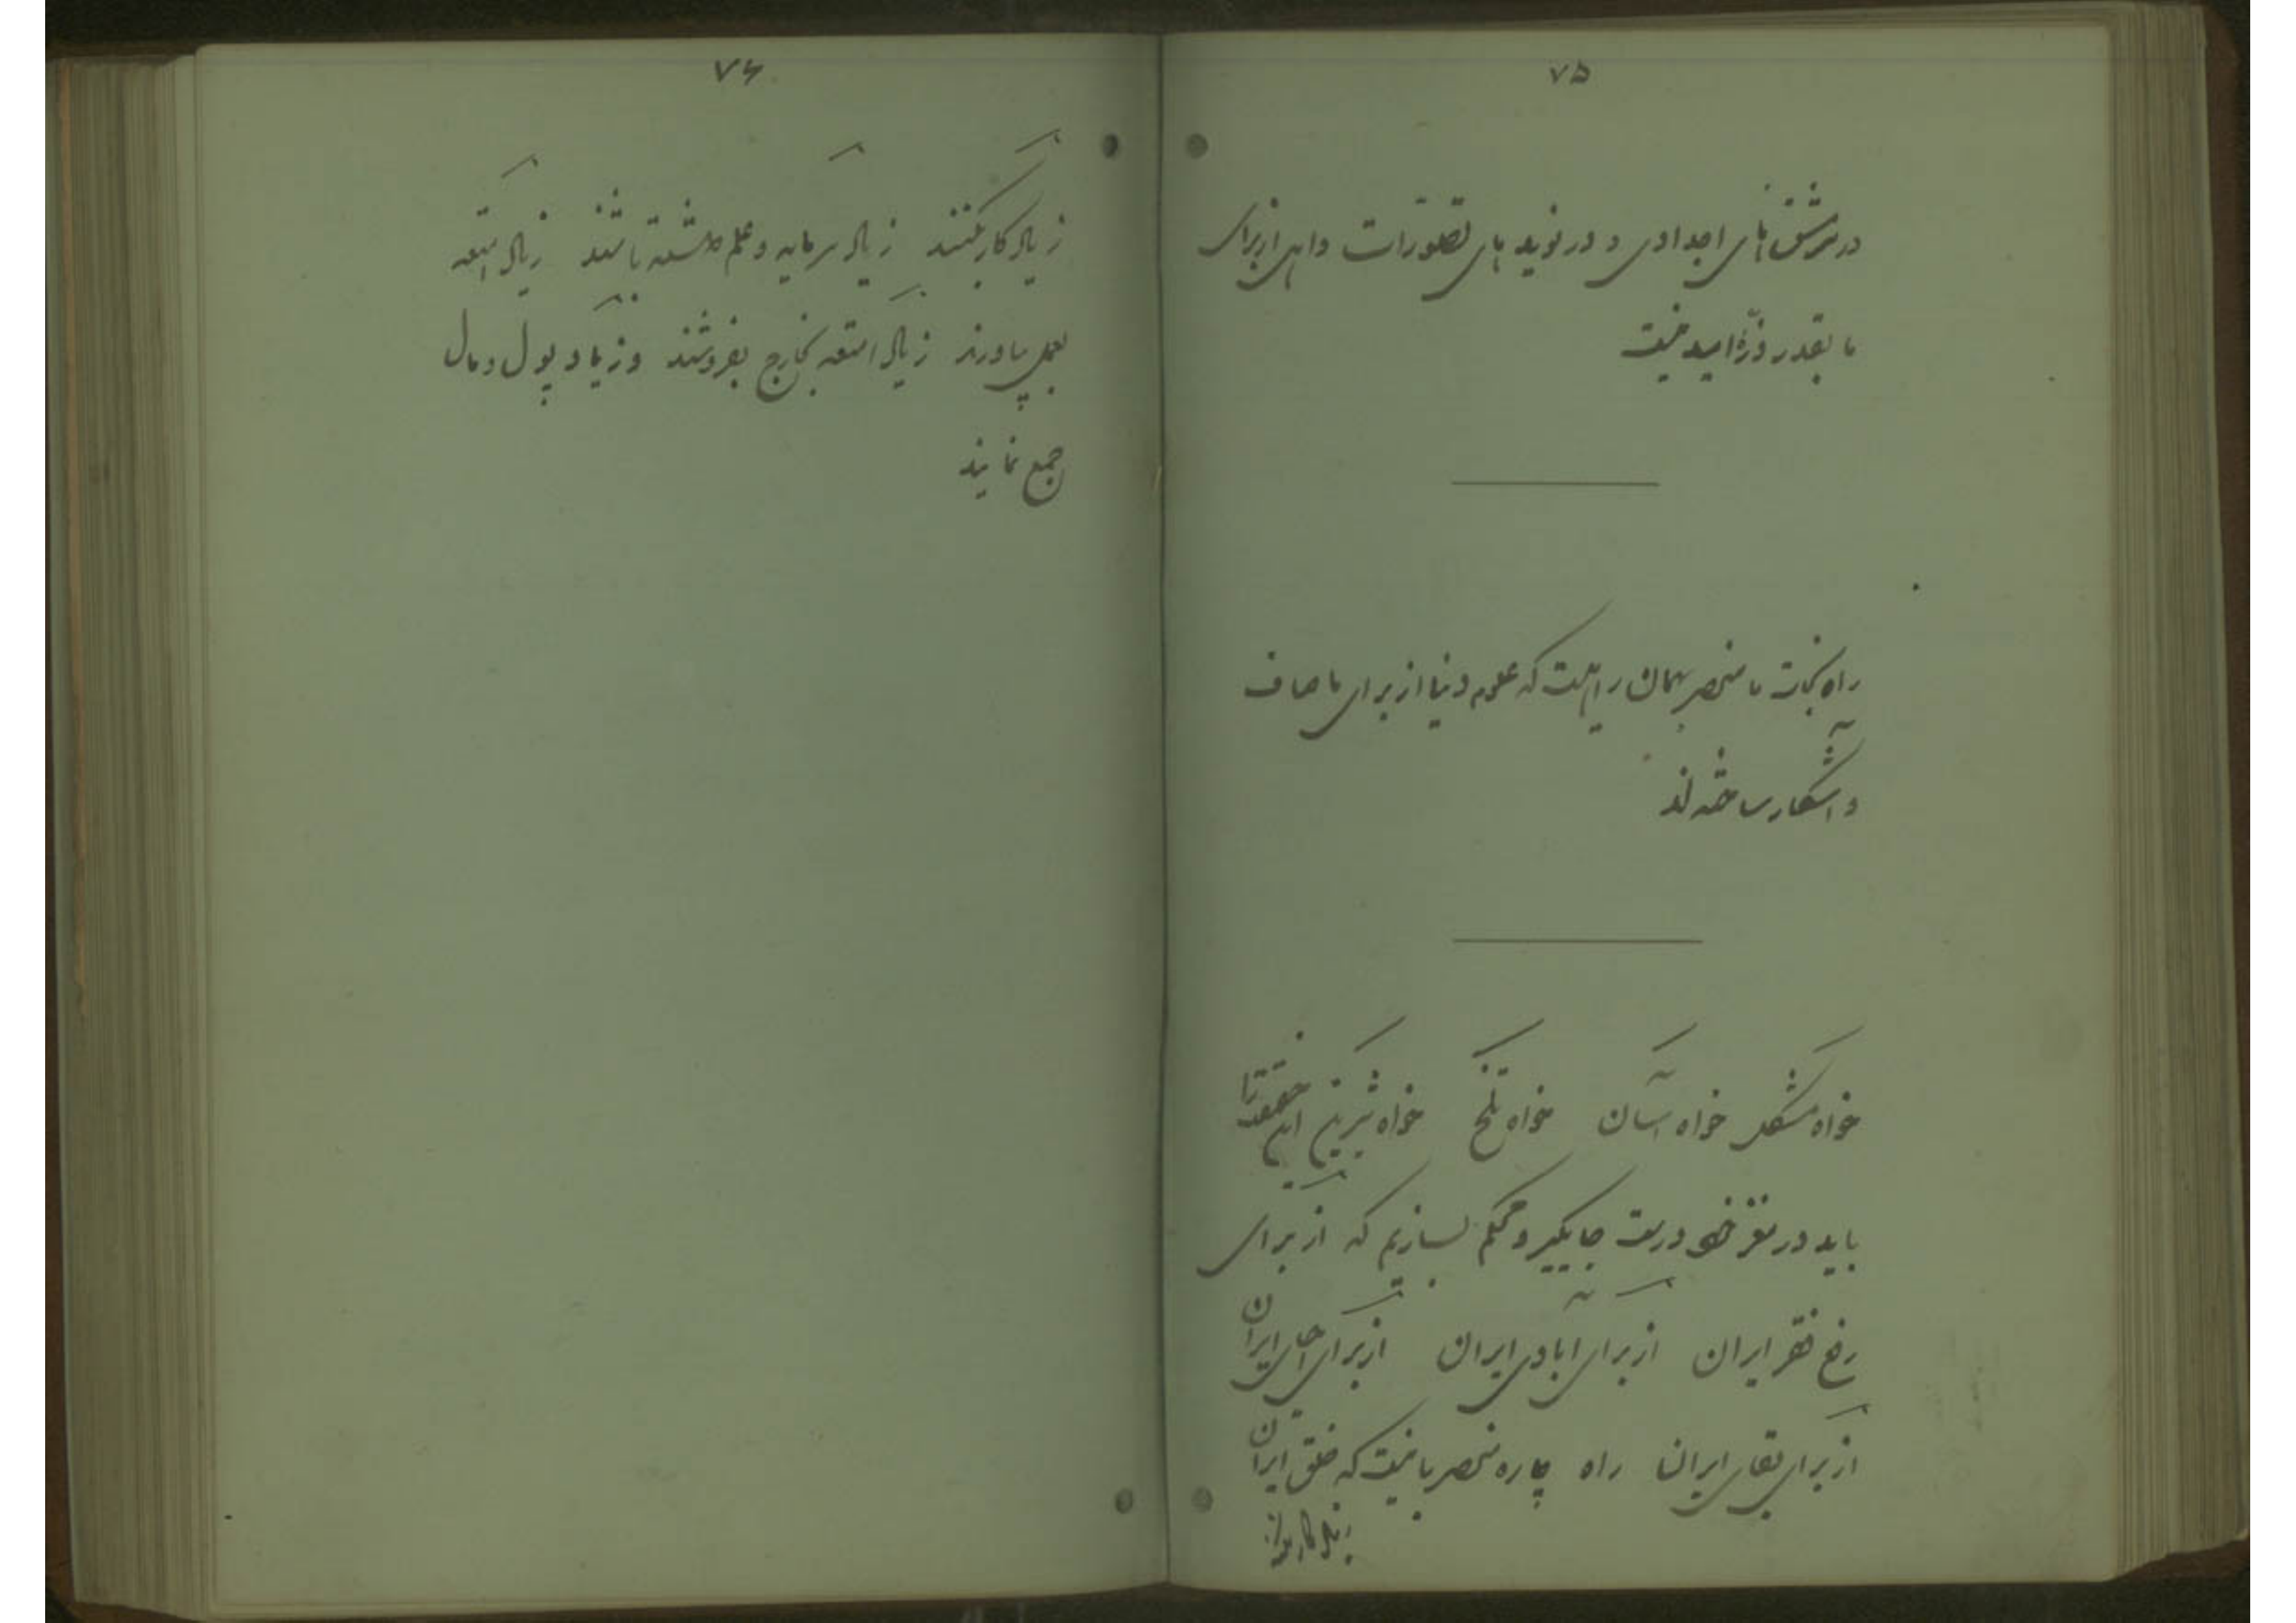 ۷۵
در سرمشقهای اجدادی و در نویدهای تصوّرات واهی از برای
ما بقدر ذرّهٔ امید نیست
راه نجات ما منحصر بهمان راهیست که علوم دنیا از برای ما صاف
و آشکار ساخته‌اند
خواه مشکل خواه آسان خواه تلخ خواه شیرین این حقیقت را
باید در مغز خود درست جایگیر و محکم بسازیم که از برای
رفع فقر ایران از برای آبادی ایران از برای احیای ایران
از برای بقای ایران راه چاره منحصر باینست که خلق ایران
زیاد کار
۷۶
زیاد کار بکنند زیاد سرمایه و علم داشته باشند زیاد امتعه
بعمل بیاورند زیاد امتعه بخارج بفروشند و زیاد پول و مال
جمع نمایند